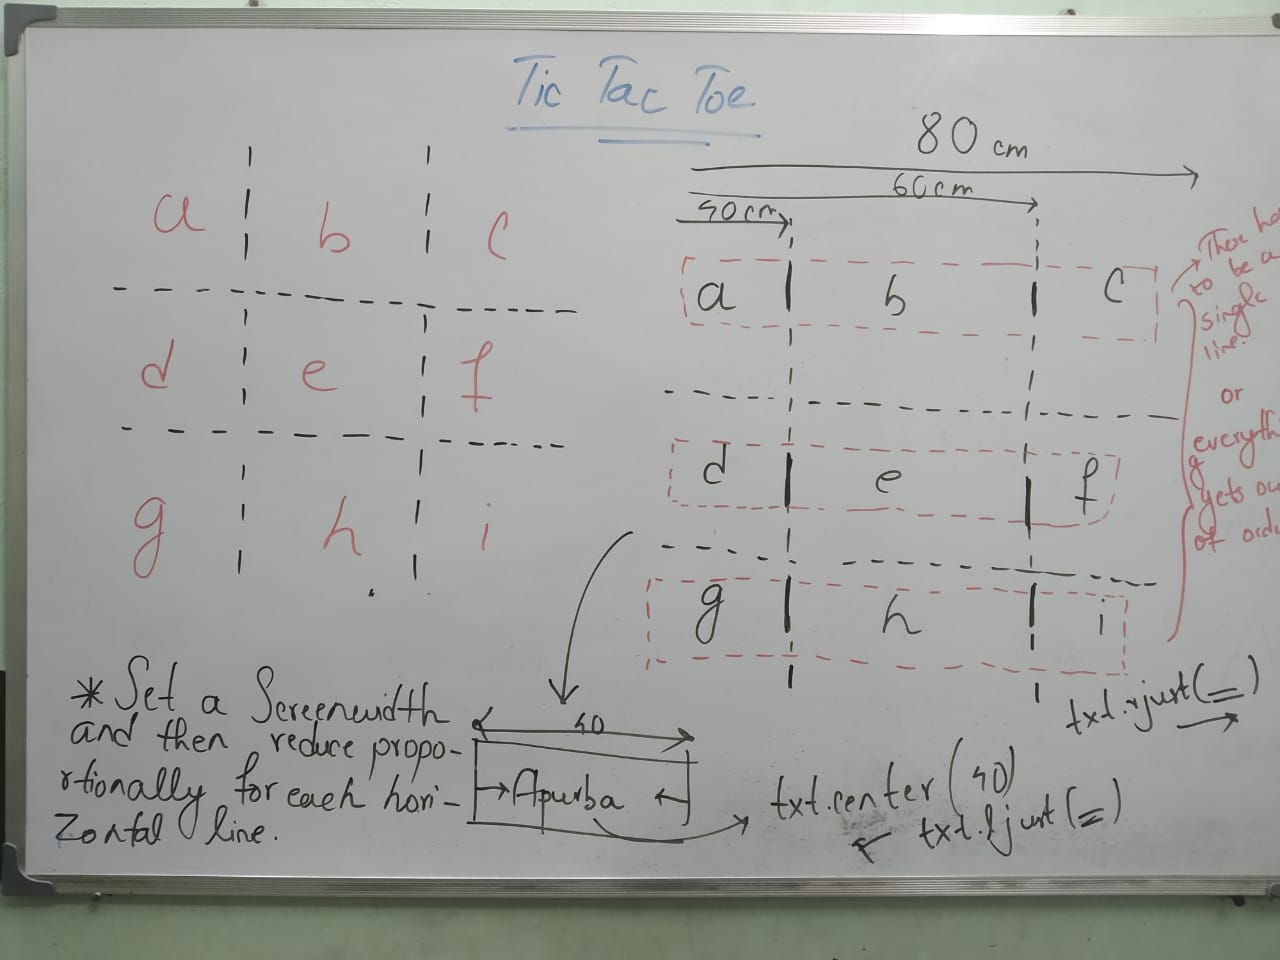 Tic Tac Toe
a b c
d e f
g h i
80 cm
60cm
40cm
a b c
d e f
g h i
There
to be a
single
line.
or
gets
of
* Set a Screenwidth
and then reduce propo-
rtionally for each hori-
Zontal line.
40
Apurba
txt.center(40)
txt.ljust(=)
txt.rjust(=)